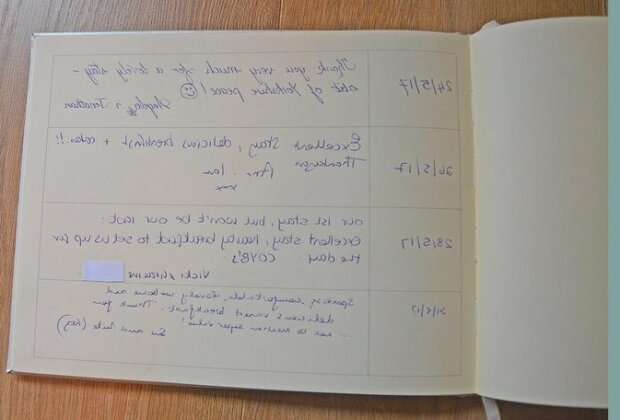 24/5/17
Thank you very much for a lovely stay -
of Yorkshire peace! ☺
Angela & Jonathan
26/5/17
Excellent stay, delicious breakfast + cakes!!
Thankyou
Ian
xxx
28/5/17
our 1st stay, but won't be our last.
Excellent stay, hearty breakfast to set us up for
the day. COYB's
Vicki
/5/17
Spacious, comfortable, lovely welcome and
delicious varied breakfast. Thank you
... not to mention super value!
Sue and Mike